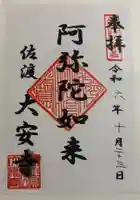 奉拝
令和六年十月二十三日
阿弥陀如来
佐渡
大安寺